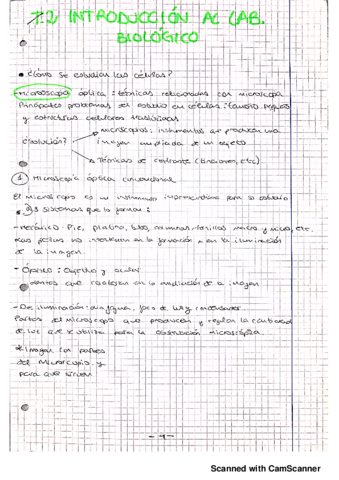 7.2 INTRODUCCIÓN AL LAB.
BIOLÓGICO
• ¿Cómo se estudian las células?
- Microscopía óptica: técnicas relacionadas con microscopio
Principales problemas del estudio en células: tamaño pequeño
y estructuras celulares traslúcidas
¿Solución?
microscopios: instrumentos que producen una
imagen ampliada de un objeto
Técnicas de contraste (tinciones, etc)
1 Microscopía óptica convencional
El microscopio es un instrumento imprescindible para su estudio
3 sistemas que lo forman:
- Mecánico: Pie, platina, tubo, tornillos macro y micro, etc.
no intervienen en la formación ni en la iluminación
de la imagen.
- Óptico: Objetivo y ocular
Lentes que en la ampliación de la imagen
- De iluminación: diafragma, foco de luz y condensador
Partes del microscopio que producen y regulan la cantidad
de luz que se utiliza para la observación microscópica.
Imagen con partes
del Microscopio y
para que sirven
Scanned with CamScanner